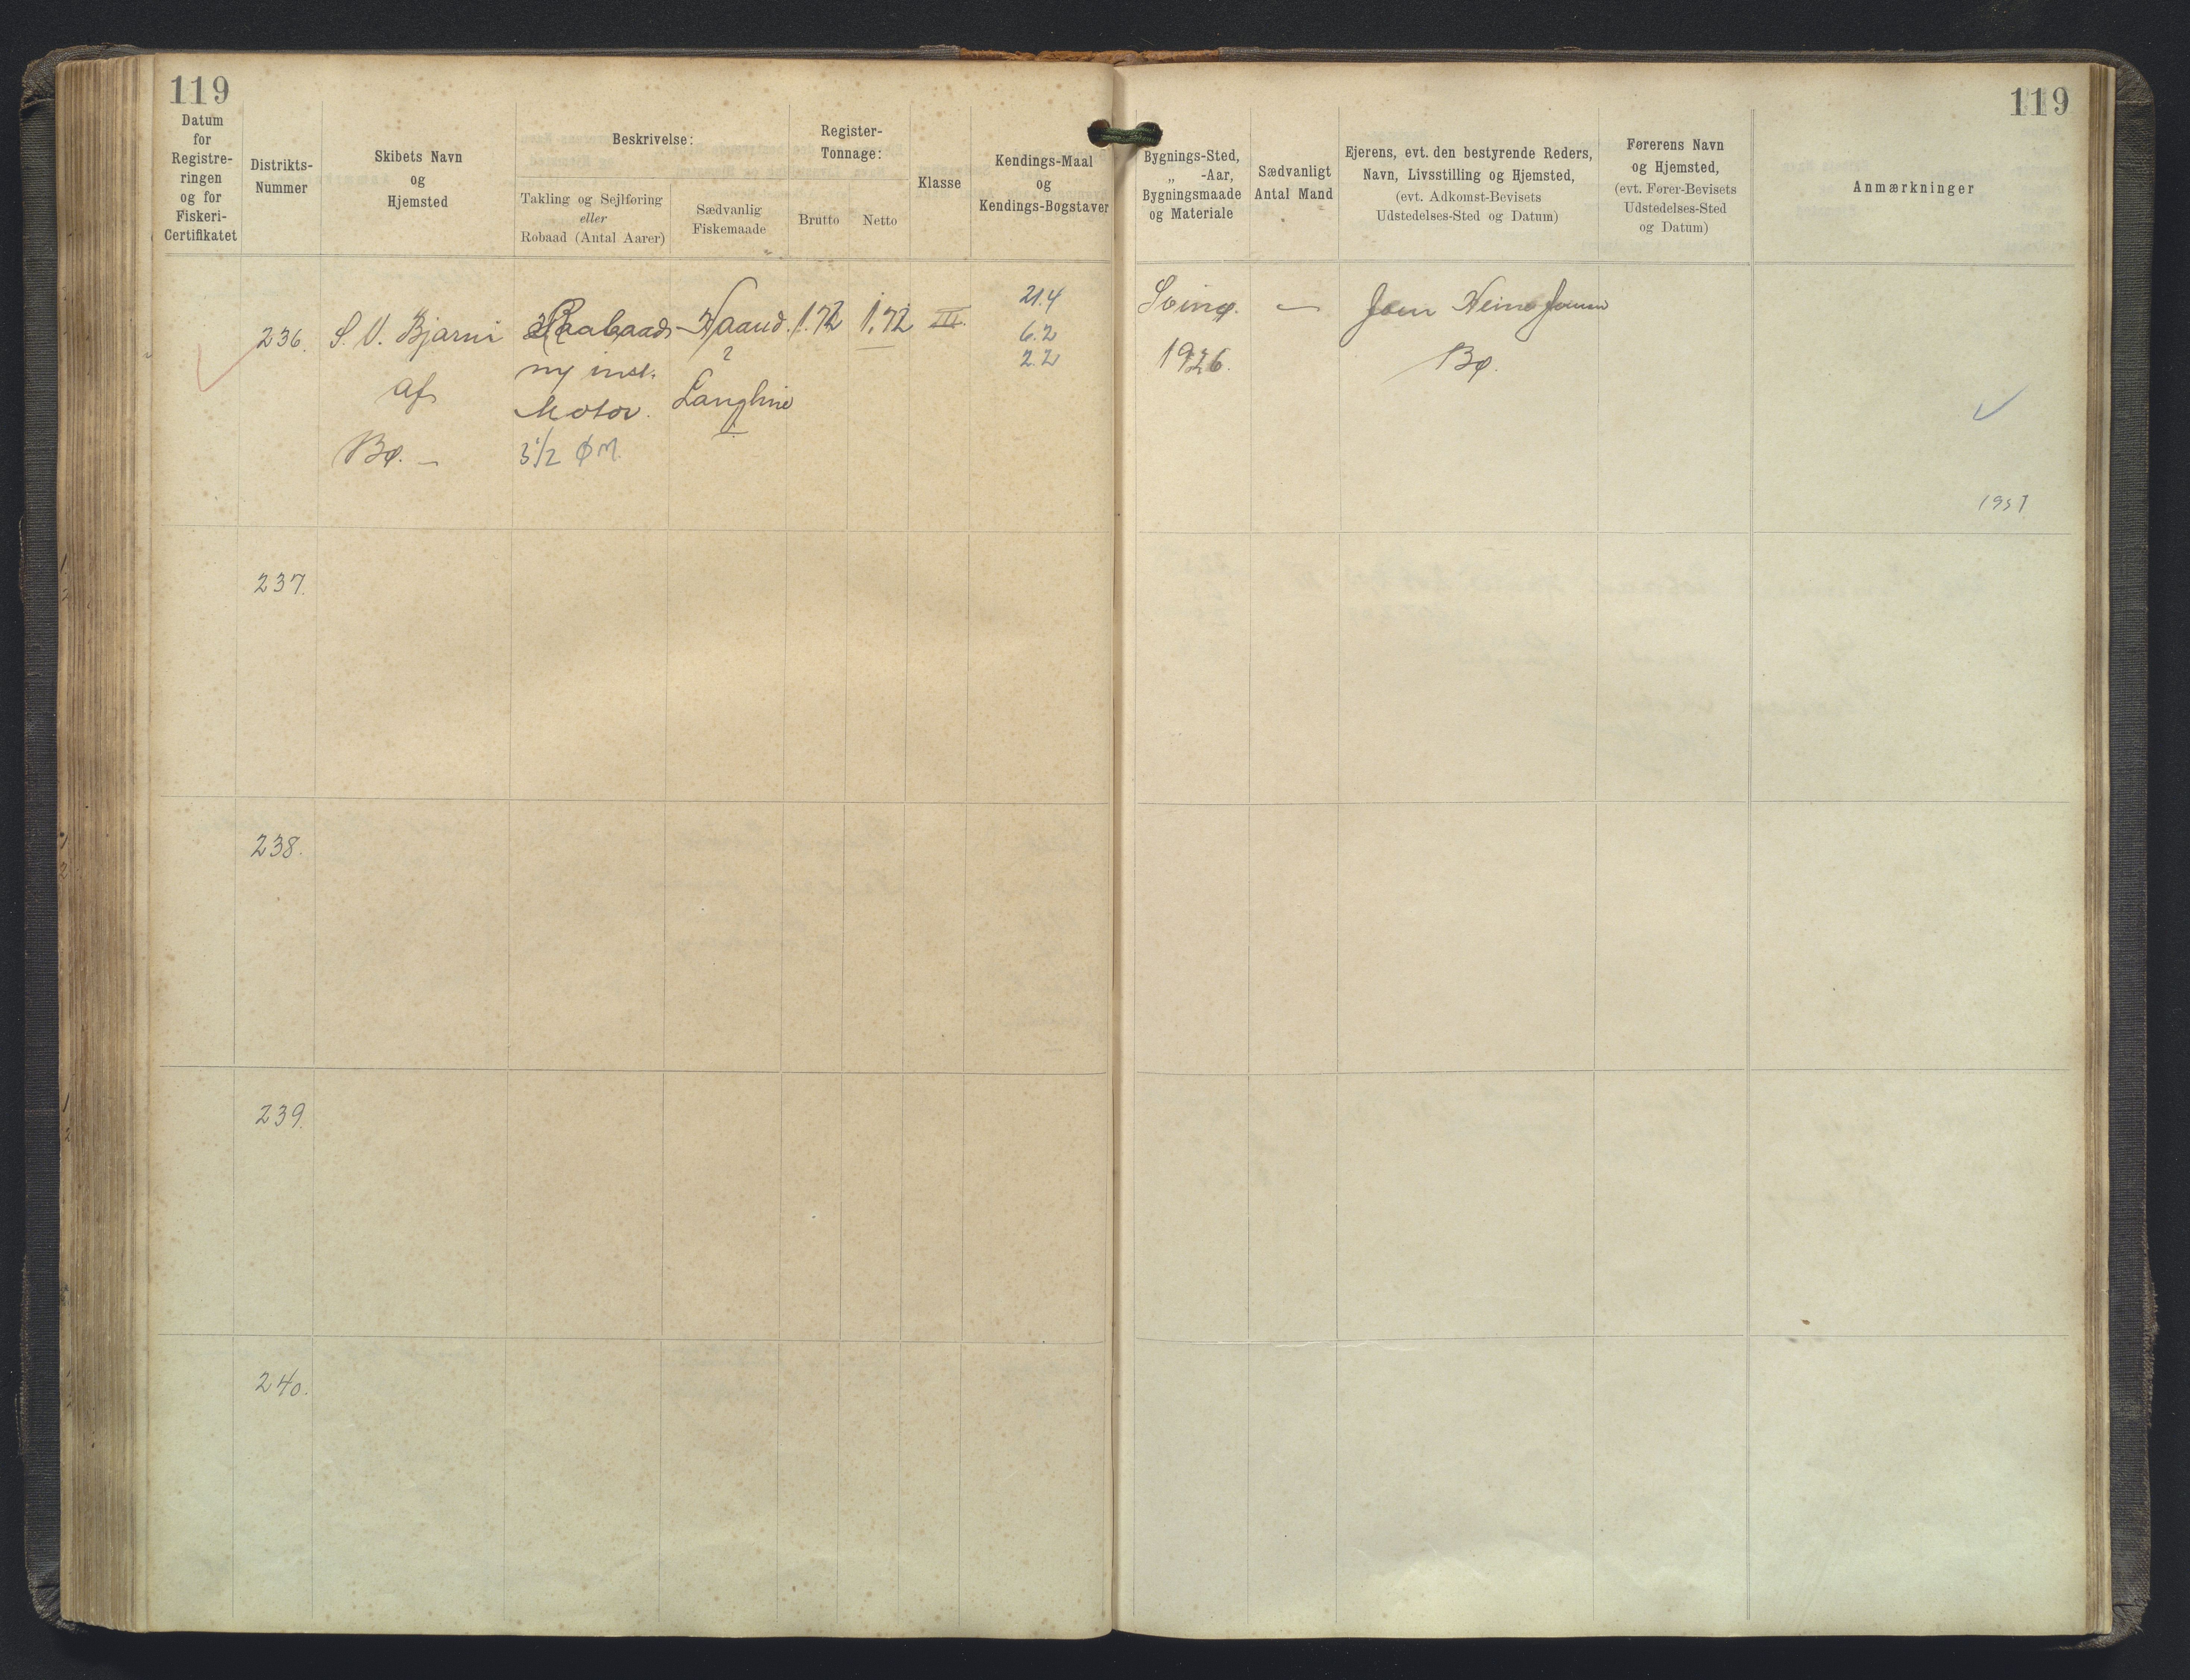 119
119
Datum
for
Registre-
ringen
og for
Fiskeri-
Certifikatet
Distrikts-
Nummer
Skibets Navn
og
Hjemsted
Beskrivelse:
Takling og Sejlføring
eller
Robaad (Antal Aarer)
Sædvanlig
Fiskemaade
Register-
Tonnage:
Brutto
Netto
Klasse
Kendings-Maal
og
Kendings-Bogstaver
Bygnings-Sted,
„ -Aar,
Bygningsmaade
og Materiale
Sædvanligt
Antal Mand
Ejerens, evt. den bestyrende Reders,
Navn, Livsstilling og Hjemsted,
(evt. Adkomst-Bevisets
Udstedelses-Sted og Datum)
Førerens Navn
og Hjemsted,
(evt. Fører-Bevisets
Udstedelses-Sted
og Datum)
Anmærkninger
236.
S. V. Bjarni
af
Bø. —
ny inst.
Motor.
3 1/2 ØM.
Haand.
Langline
1.72
1.72
III.
21.4
6.2
2.2
Svinø.
1926.
—
Heine
Bø.
1951
237.
238.
239.
240.